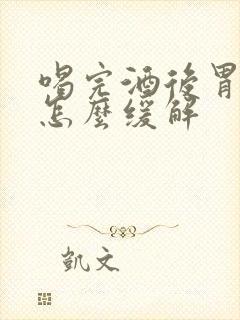 喝完酒後胃
怎麼緩解
凱文